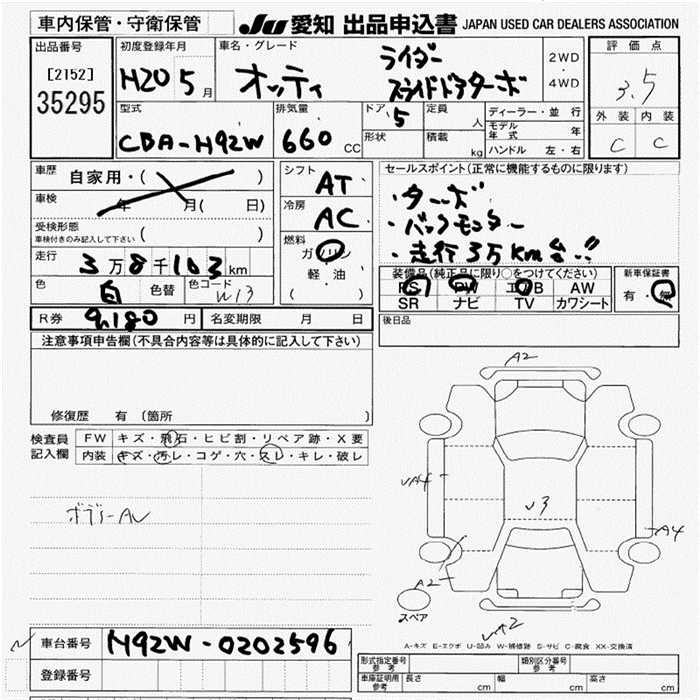 車内保管・守衛保管
JU 愛知 出品申込書 JAPAN USED CAR DEALERS ASSOCIATION
出品番号
[2152]
35295
初度登録年月
H20 5 月
車名・グレード
オッティ
ライダー
スライドドアターボ
2WD
・
4WD
評価点
3.5
外装 内装
C C
型式
CBA-H92W
排気量
660 cc
ドア 5
形状
定員 人
積載 kg
ディーラー・並行
モデル年式 年
ハンドル 左・右
車歴
自家用・( )
車検
年 月( 日)
受検形態
車検付きのみ記入して下さい ( )
走行
3万8千103km
色 白 色替 色コード W13
シフト
AT
冷房
AC
燃料
ガソリン
軽・油
( )
セールスポイント(正常に機能するものに限ります)
・ターボ
・バックモニター
・走行3万km台!!
装備品(純正品に限り○をつけてください)
PS PW エアB AW
SR ナビ TV カワシート
新車保証書
有・無
R券 9,180 円 名変期限 月 日
後日品
注意事項申告欄(不具合内容等は具体的に記入して下さい)
修復歴 有(箇所 )
検査員
記入欄
FW キズ・飛石・ヒビ割・リペア跡・X要
内装 キズ・汚レ・コゲ・穴・スレ・キレ・破レ
A2
A4
v3
A4
A2
スペア
A2
A-キズ E-エクボ U-凹み W-補修跡 S-サビ C-腐食 XX-交換済
車台番号 H92W-0202596
登録番号
形式指定番号 参考
類別区分番号 参考
車庫証明用 参考 長さ cm 幅 cm 高さ cm